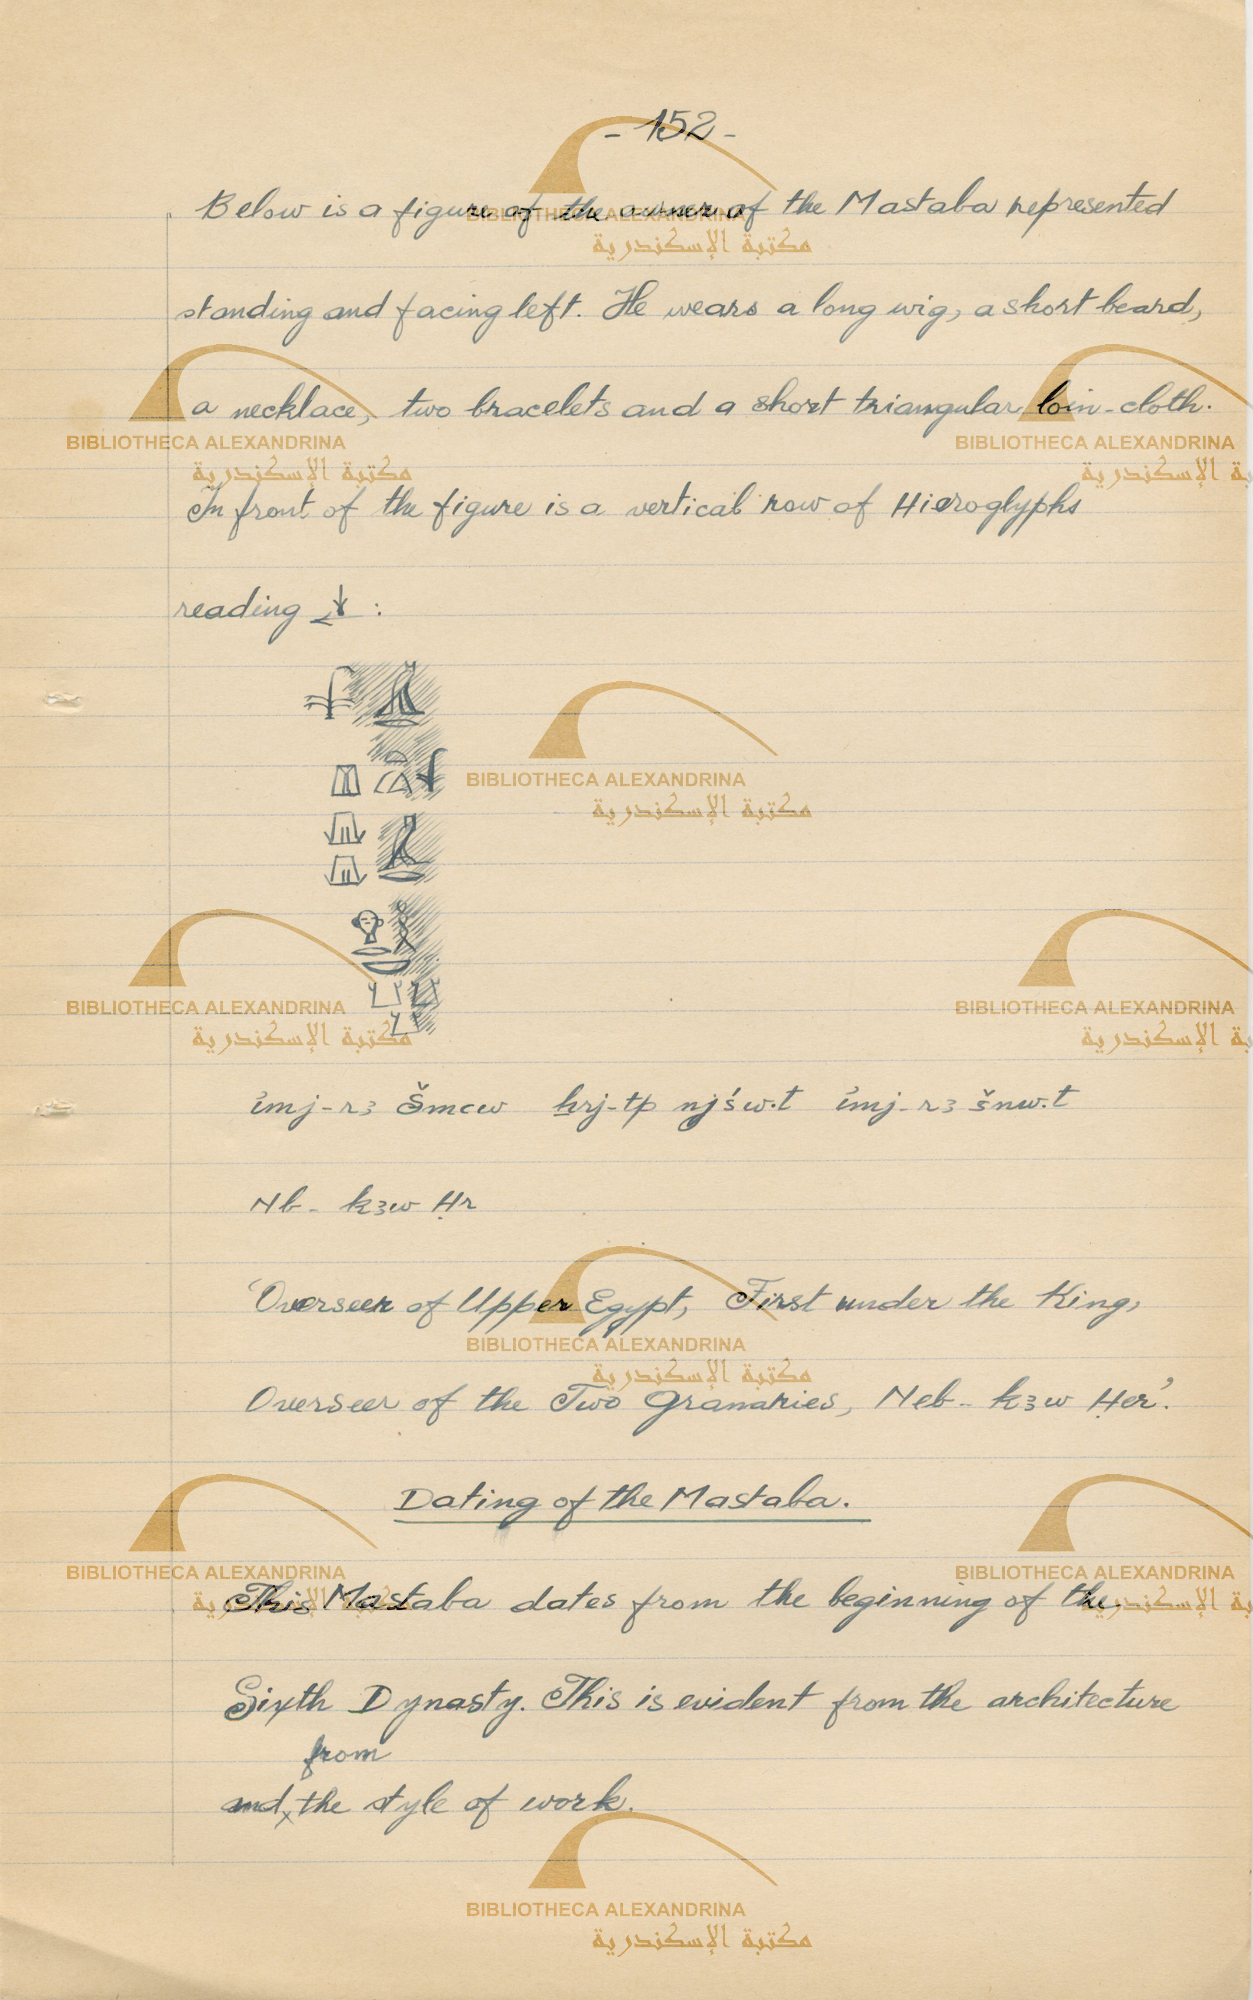 - 152 -
Below is a figure of the owner of the Mastaba represented
standing and facing left. He wears a long wig, a short beard,
a necklace, two bracelets and a short triangular loin-cloth.
In front of the figure is a vertical row of Hieroglyphs
reading ↓ :
ỉmj-rꜣ Šmꜥw ẖrj-tp njśw.t ỉmj-rꜣ šnw.t
Nb-kꜣw Ḥr
'Overseer of Upper Egypt, First under the King,
Overseer of the Two Granaries, Neb-kꜣw Ḥer'.
Dating of the Mastaba.
This Mastaba dates from the beginning of the
Sixth Dynasty. This is evident from the architecture
from
and x the style of work.
BIBLIOTHECA ALEXANDRINA
مكتبة الإسكندرية